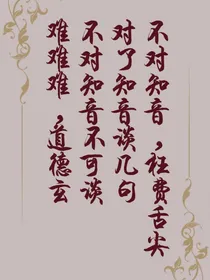 难难难，道德玄
不对知音不可谈
对了知音谈几句
不对知音，枉费舌尖